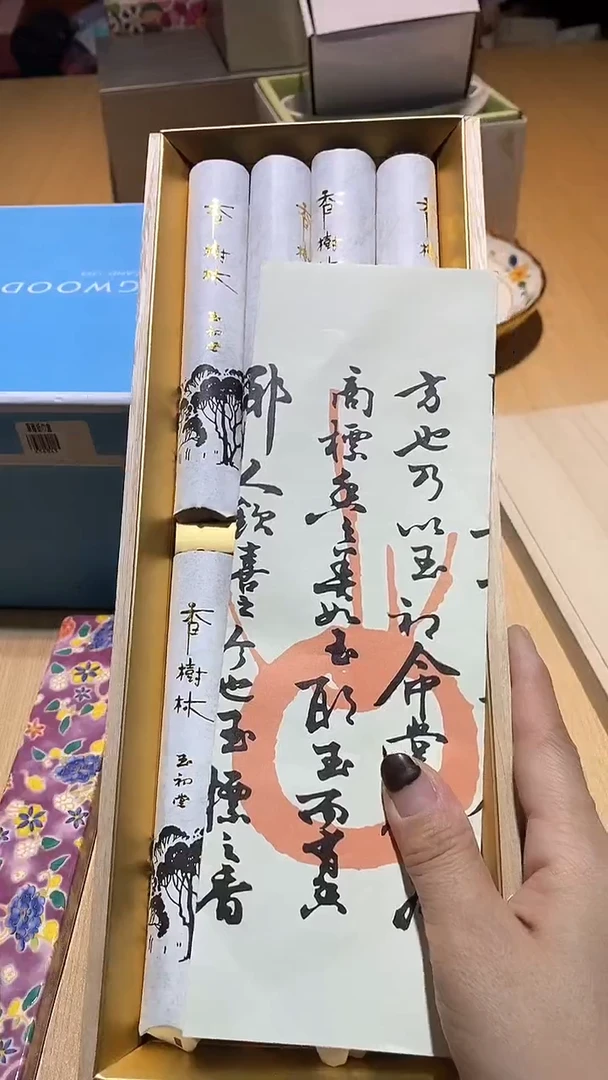 香樹林
玉初堂
香
香樹
香
香樹林
玉初堂
方也乃以玉初命堂
高標香之美如玉取玉不言
耶人欽喜之今也玉標之香
GWOOD